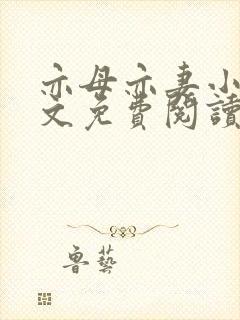 亦母亦妻小
文免費閱讀
魯藝